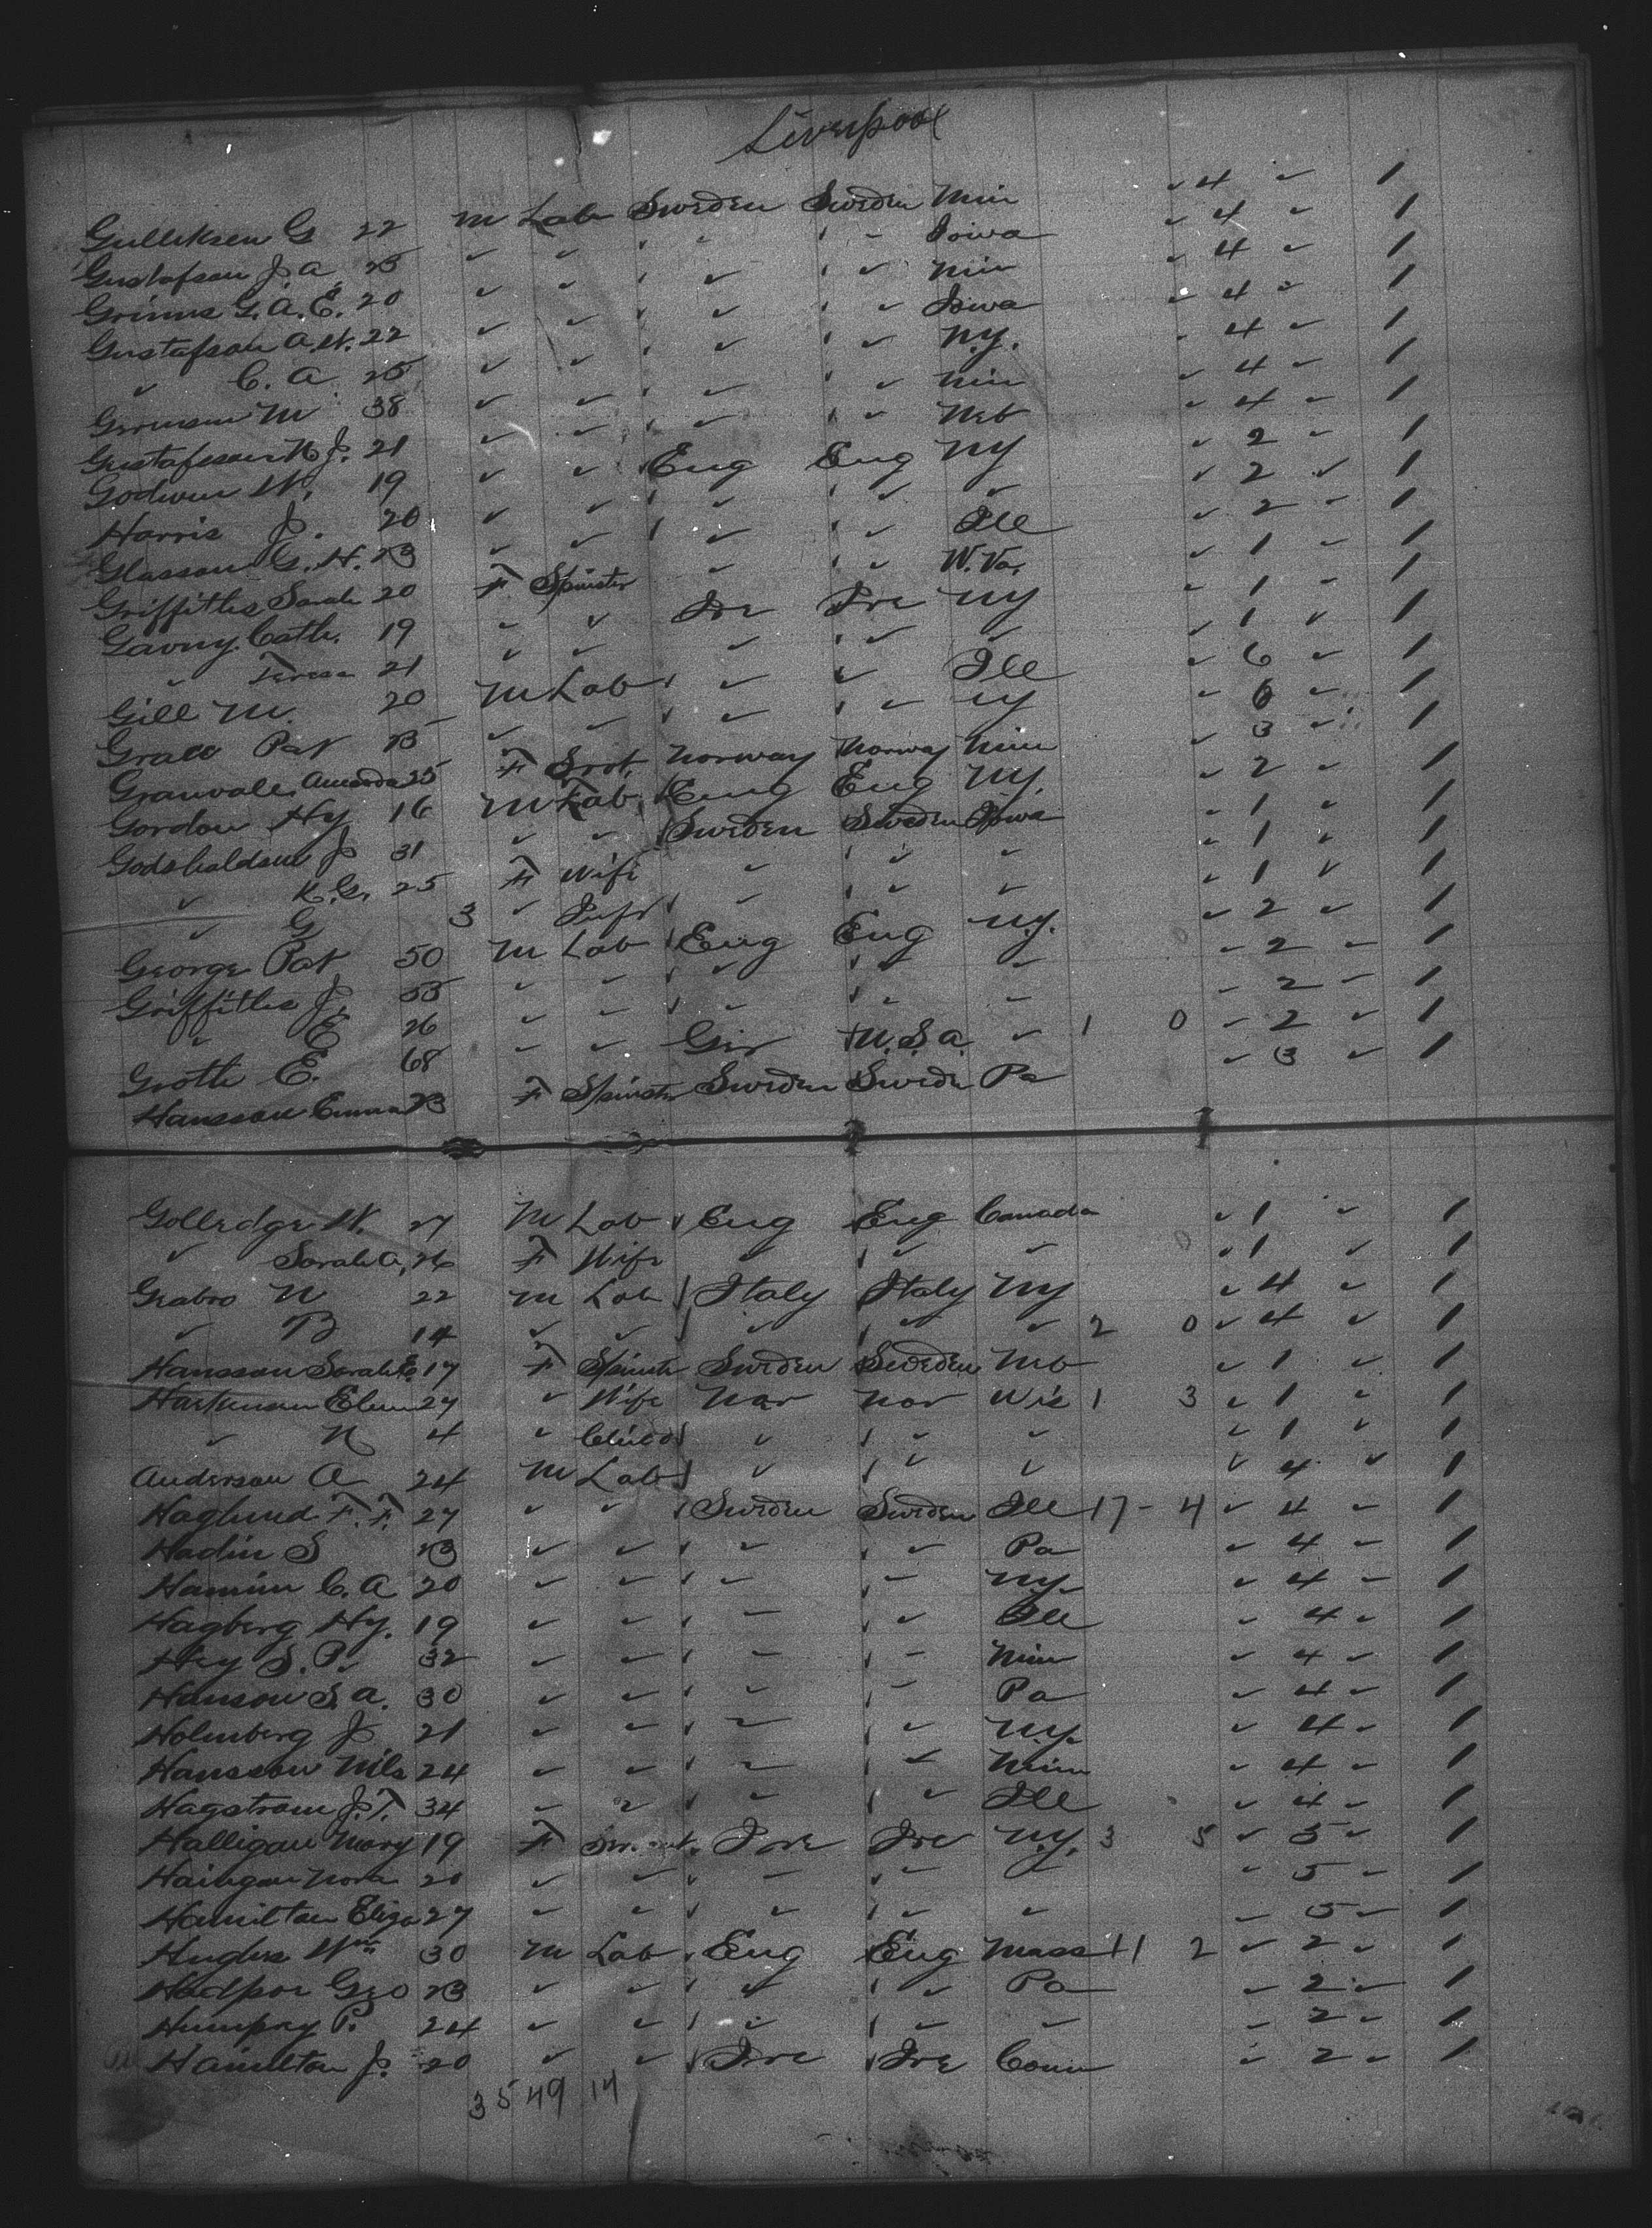 Liverpool
Gulliksen G 22 M Lab Sweden Sweden Min ✓ 4 ✓ 1
Gustafson J. A 25 ✓ ✓ ✓ ✓ Iowa ✓ 4 ✓ 1
Grims G. A. E. 20 ✓ ✓ ✓ ✓ Min ✓ 4 ✓ 1
Gustafson A. W. 22 ✓ ✓ ✓ ✓ Iowa ✓ 4 ✓ 1
✓ C. A 25 ✓ ✓ ✓ ✓ N.Y. ✓ 4 ✓ 1
M 38 ✓ ✓ ✓ ✓ Min ✓ 4 ✓ 1
Gustafsson N J. 21 ✓ ✓ ✓ ✓ Neb ✓ 4 ✓ 1
Godwin W. 19 ✓ ✓ Eng Eng NY ✓ 2 ✓ 1
Harris J. 20 ✓ ✓ ✓ ✓ ✓ ✓ 2 ✓ 1
Glasson G. H. 23 ✓ ✓ ✓ ✓ Ill ✓ 2 ✓ 1
Griffiths Sarah 20 F Spinster ✓ ✓ W. Va. ✓ 1 ✓ 1
Cath. 19 ✓ ✓ Ire Ire NY ✓ 1 ✓ 1
✓ Teresa 21 ✓ ✓ ✓ ✓ ✓ ✓ 1 ✓ 1
Gill M. 20 M Lab ✓ ✓ Ill ✓ 6 ✓ 1
Pat 23 ✓ ✓ ✓ ✓ NY ✓ 6 ✓ 1
Granvale Amanda 25 F Srvt. Norway Norway Min ✓ 3 ✓ 1
Gordon Hy 16 M Lab Eng Eng NY. ✓ 2 ✓ 1
J 31 ✓ ✓ Sweden Sweden Iowa ✓ 1 ✓ 1
✓ K. G. 25 F Wife ✓ ✓ ✓ ✓ 1 ✓ 1
✓ G 3 ✓ Inft ✓ ✓ ✓ ✓ 1 ✓ 1
George Pat 50 M Lab Eng Eng N.Y. ✓ 2 ✓ 1
Griffiths J. 53 ✓ ✓ ✓ ✓ ✓ 0 ✓ 2 ✓ 1
✓ E 26 ✓ ✓ ✓ ✓ ✓ ✓ 2 ✓ 1
Groth E. 68 ✓ ✓ Ger U.S.A. ✓ 1 0 ✓ 2 ✓ 1
Hansson Emma 23 F Spinster Sweden Sweden Pa ✓ 3 ✓ 1
Golledge W. 27 M Lab Eng Eng Canada ✓ 1 ✓ 1
✓ Sarah A, 26 F Wife ✓ ✓ ✓ 0 ✓ 1 ✓ 1
Grabro N 22 M Lab Italy Italy NY ✓ 4 ✓ 1
✓ B 14 ✓ ✓ ✓ ✓ ✓ 2 0 ✓ 4 ✓ 1
Hansson Sarah E. 17 F Spinster Sweden Sweden Mo ✓ 1 ✓ 1
27 ✓ Wife Nor Nor Wis 1 3 ✓ 1 ✓ 1
✓ N 4 ✓ Child ✓ ✓ ✓ ✓ 1 ✓ 1
Anderson A 24 M Lab ✓ ✓ ✓ ✓ 4 ✓ 1
Haglund F. F. 27 ✓ ✓ Sweden Sweden Ill 17 - 4 ✓ 4 ✓ 1
Hadin S 23 ✓ ✓ ✓ ✓ Pa ✓ 4 ✓ 1
C. A 20 ✓ ✓ ✓ ✓ NY. ✓ 4 ✓ 1
Hagberg Hy. 19 ✓ ✓ ✓ ✓ Ill ✓ 4 ✓ 1
Hey S. P. 32 ✓ ✓ ✓ ✓ Min ✓ 4 ✓ 1
Hanson S. A. 30 ✓ ✓ ✓ ✓ Pa ✓ 4 ✓ 1
Holmberg J 21 ✓ ✓ ✓ ✓ N.Y. ✓ 4 ✓ 1
Hansson Nils 24 ✓ ✓ ✓ ✓ Minn ✓ 4 ✓ 1
Hagstrom J. T. 34 ✓ ✓ ✓ ✓ Ill ✓ 4 ✓ 1
Halligan Mary 19 F Servant Ire Ire N.Y. 3 5 ✓ 5 ✓ 1
Nora 20 ✓ ✓ ✓ ✓ ✓ ✓ 5 ✓ 1
Hamilton Eliza 27 ✓ ✓ ✓ ✓ ✓ ✓ 5 ✓ 1
Hughes Wm 30 M Lab Eng Eng Mass 11 2 ✓ 2 ✓ 1
Geo 23 ✓ ✓ ✓ ✓ Pa ✓ 2 ✓ 1
Humpry P. 24 ✓ ✓ ✓ ✓ ✓ ✓ 2 ✓ 1
Hamilton J. 20 ✓ ✓ Ire Ire Conn ✓ 2 ✓ 1
35 49 14